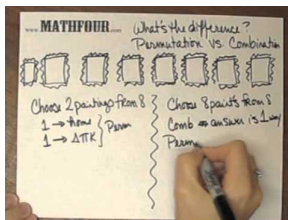 www.MATHFOUR.com
What's the difference?
Permutation vs. Combination
Choose 2 paintings from 8
1 → home
1 → ΔΠK
} Perm
Choose 8 paints from 8
Comb ⇒ answer is 1 way
Perm